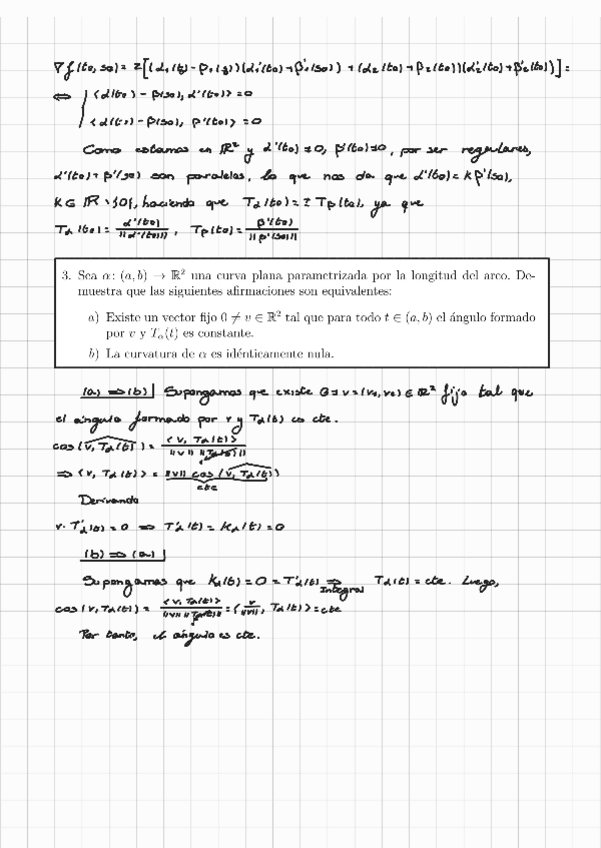 ∇f(t₀, s₀) = 2[(α₁(t₀) - β₁(s₀))(α₁'(t₀) + β₁'(s₀)) + (α₂(t₀) + β₂(t₀))(α₂'(t₀) + β₂'(t₀))] =
⇔ { <α(t₀) - β(s₀), α'(t₀)> = 0
<α(t₀) - β(s₀), β'(t₀)> = 0
Como estamos en ℝ² y α'(t₀) ≠ 0, β'(t₀) ≠ 0, por ser regulares,
α'(t₀) y β'(s₀) son paralelas, lo que nos da que α'(t₀) = k β'(s₀),
k ∈ ℝ \ {0}, haciendo que Tα(t₀) = ± Tβ(t₀), ya que
Tα(t₀) = α'(t₀)/||α'(t₀)||, Tβ(t₀) = β'(t₀)/||β'(s₀)||
3. Sea α: (a, b) → ℝ² una curva plana parametrizada por la longitud del arco. De-
muestra que las siguientes afirmaciones son equivalentes:
a) Existe un vector fijo 0 ≠ v ∈ ℝ² tal que para todo t ∈ (a, b) el ángulo formado
por v y Tα(t) es constante.
b) La curvatura de α es idénticamente nula.
(a) ⇒ (b) Supongamos que existe 0 ≠ v = (v₁, v₂) ∈ ℝ² fijo tal que
el ángulo formado por v y Tα(t) es cte.
cos(v, Tα(t)) = <v, Tα(t)>/||v|| ||Tα(t)||
⇒ <v, Tα(t)> = ||v|| cos(v, Tα(t))
cte
Derivando
v · T'α(t) = 0 ⇒ T'α(t) = kα(t) = 0
(b) ⇒ (a)
Supongamos que kα(t) = 0 = T'α(t) ⇒ Integral Tα(t) = cte. Luego,
cos(v, Tα(t)) = <v, Tα(t)>/||v|| ||Tα(t)|| = <v/||v||, Tα(t)> = cte
Por tanto, el ángulo es cte.